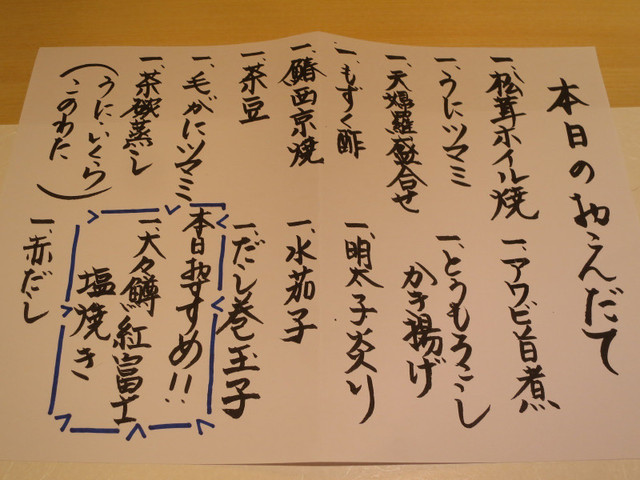 本日のおこんだて
一、松茸ホイル焼
一、うにツマミ
一、天婦羅盛合せ
一、もずく酢
一、鰆西京焼
一、茶豆
一、毛がにツマミ
一、茶碗蒸し
(うに・いくら
このわた)
一、アワビ旨煮
一、とうもろこし
かき揚げ
一、明太子炙り
一、水茄子
一、だし巻玉子
本日おすすめ!!
一、大々鱒、紅富士
塩焼き
一、赤だし